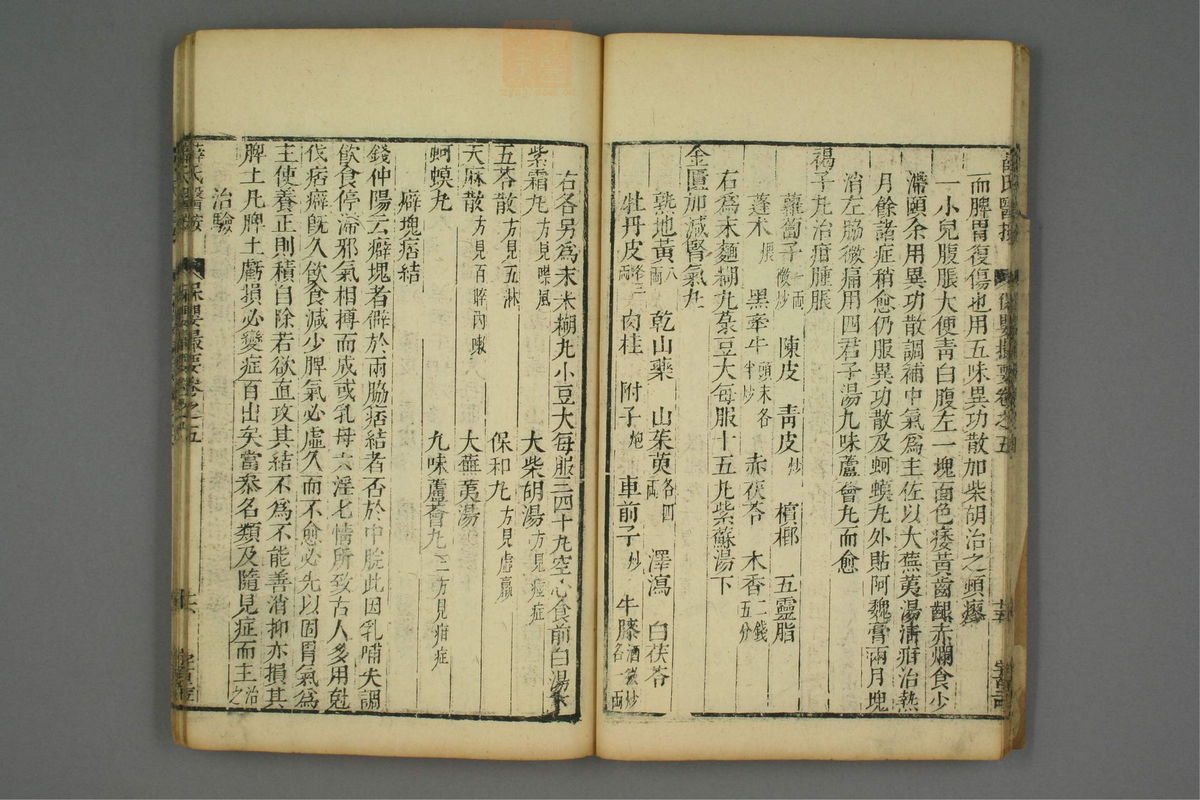 而脾胃復傷也用五味異功散加柴胡治之頓瘳
一小兒腹脹大便青白腹左一塊面色痿黃齒齦赤爛食少
滯頤余用異功散調補中氣爲主佐以大蕪荑湯清疳治熱
月餘諸症稍愈仍服異功散及蚵蟆丸外貼阿魏膏兩月塊
消左脇微痛用四君子湯九味蘆會丸而愈
褐子丸治疳腫脹
蘿蔔子一兩微炒 陳皮 青皮炒 檳榔 五靈脂
蓬朮煨 黑牽牛頭末各半炒 赤茯苓 木香二錢五分
右爲末麵糊丸菉豆大每服十五丸紫蘇湯下
金匱加減腎氣丸
熟地黃八兩 乾山藥 山茱萸各四兩 澤瀉 白茯苓
牡丹皮各三兩 肉桂 附子炮 車前子炒 牛膝酒微炒各兩
右各另爲末米糊丸小豆大每服三四十丸空心食前白湯下
紫霜丸方見噤風 大柴胡湯方見痙症
五苓散方見五淋 保和丸方見虛羸
天麻散方見百晬內嗽 大蕪荑湯
蚵蟆丸 九味蘆薈丸二方見疳症
癖塊痞結
錢仲陽云癖塊者僻於兩脇痞結者否於中脘此因乳哺失調
飲食停滯邪氣相搏而成或乳母六淫七情所致古人多用尅
伐痞癖旣久飲食減少脾氣必虛久而不愈必先以固胃氣爲
主使養正則積自除若欲直攻其結不爲不能善消抑亦損其
脾土凡脾土虧損必變症百出矣當叅名類及隨見症而主治之
治驗
薛氏醫按 保嬰撮要卷之五